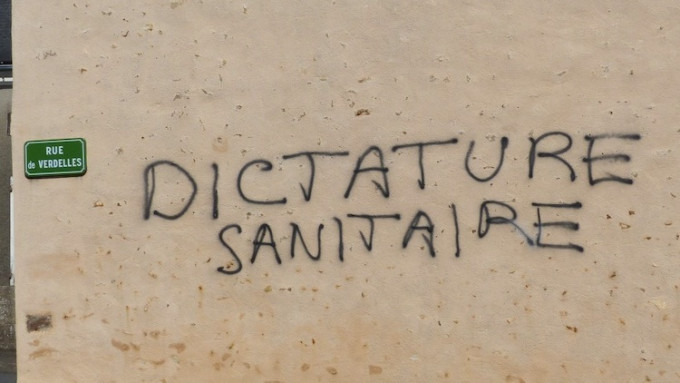 RUE
de VERDELLES
DICTATURE
SANITAIRE